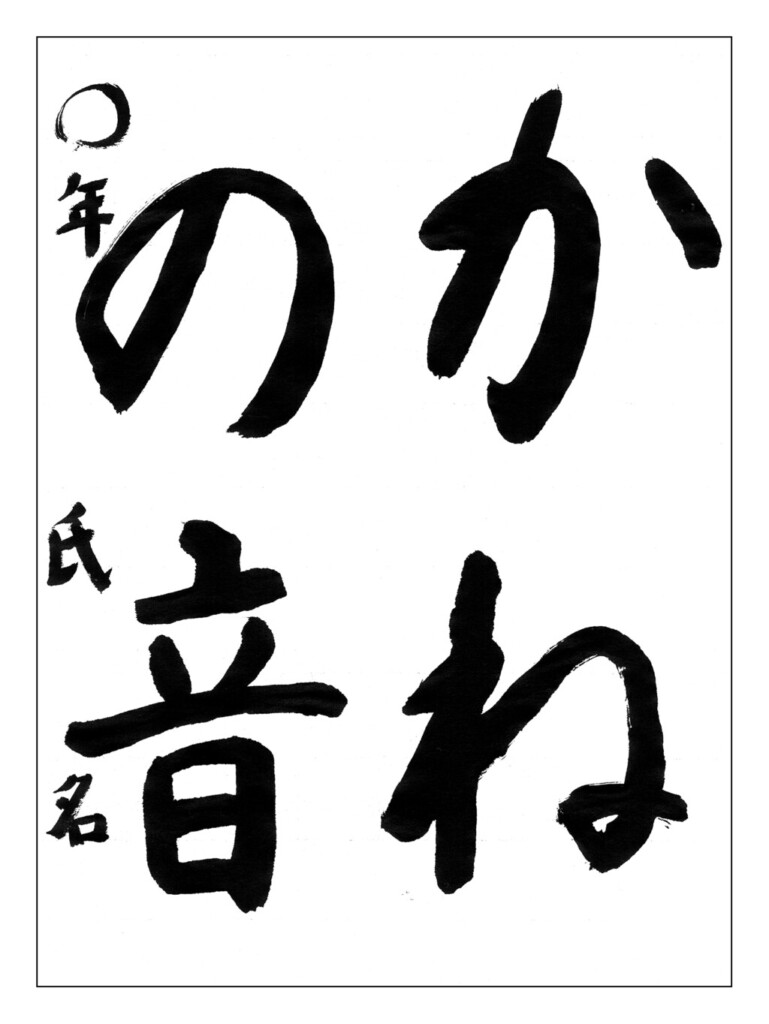 かね
の音
〇年 氏名